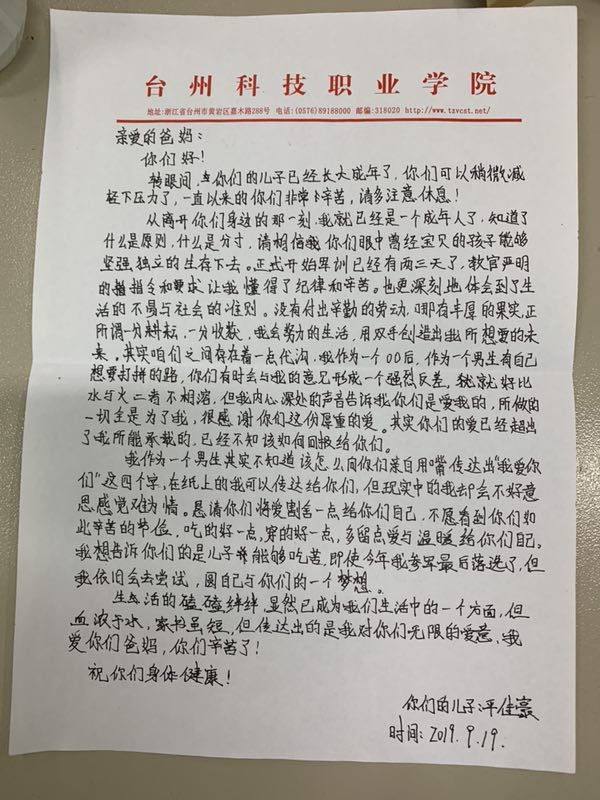 台州科技职业学院
地址:浙江省台州市黄岩区嘉木路288号 电话:(0576)89188000 邮编:318020 http://www.tzvcst.net/
亲爱的爸妈:
你们好!
转眼间,你们的儿子已经长大成年了,你们可以稍微减
轻下压力了,一直以来的你们非常辛苦,请多注意休息!
从离开你们身边的那一刻.我就已经是一个成年人了,知道了
什么是原则,什么是分寸,请相信我你们眼中曾经宝贝的孩子能够
坚强.独立的生存下去。正式开始军训已经有两三天了,教官严明
的指令和要求让我懂得了纪律和辛苦。也更深刻地体会到了生
活的不易与社会的准则。没有付出辛勤的劳动,哪有丰厚的果实,正
所谓一分耕耘,一分收获,我会努力的生活,用双手创造出我所想要的未
来。其实咱们之间存在着一点代沟,我作为一个00后,作为一个男生有自己
想要打拼的路,你们有时会与我的意见形成一个强烈反差,就好比
水与火二者不相溶,但我内心深处的声音告诉我你们是爱我的,所做的
一切全是为了我,很感谢你们这份厚重的爱。其实你们的爱已经超出
了我所能承载的.已经不知该如何回报给你们。
我作为一个男生其实不知道该怎么向你们亲自用嘴传达出“我爱你
们”这四个字,在纸上的我可以传达给你们,但现实中的我却会不好意
思感觉难为情。恳请你们将爱割舍一点给你们自己,不愿看到你们如
此辛苦的节俭,吃的好一点,穿的好一点,多留点爱与温暖给你们自己。
我想告诉你们的是儿子能够吃苦,即使今年我参军最后落选了,但
我依旧会去尝试,圆自己与你们的一个梦想。
生活的磕磕绊绊,显然已成为我们生活中的一个方面,但
血浓于水,家书虽短,但传达出的是我对你们无限的爱意,我
爱你们爸妈,你们辛苦了!
祝你们身体健康!
你们的儿子:平佳豪
时间:2019.9.19.